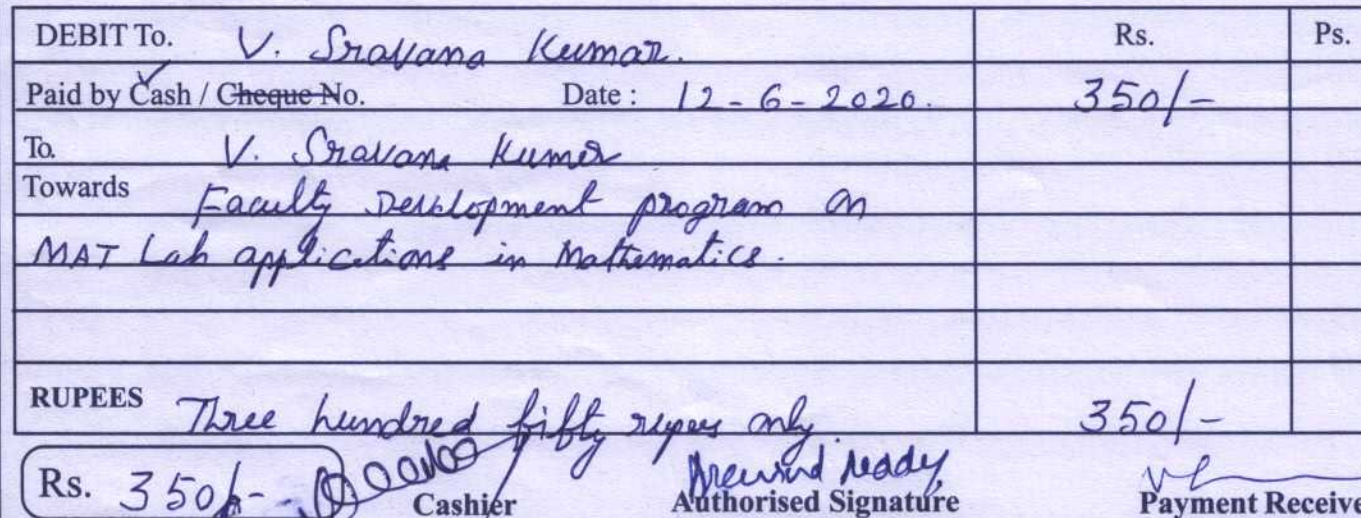 DEBIT To. V. Sravana Kumar. Rs. Ps.
Paid by Cash / Cheque No. Date : 12-6-2020. 350/-
To. V. Sravana Kumar
Towards Faculty Development program on
MAT Lab applications in Mathematics.
RUPEES Three hundred fifty rupees only 350/-
Rs. 350/-
Cashier Authorised Signature Payment Receive